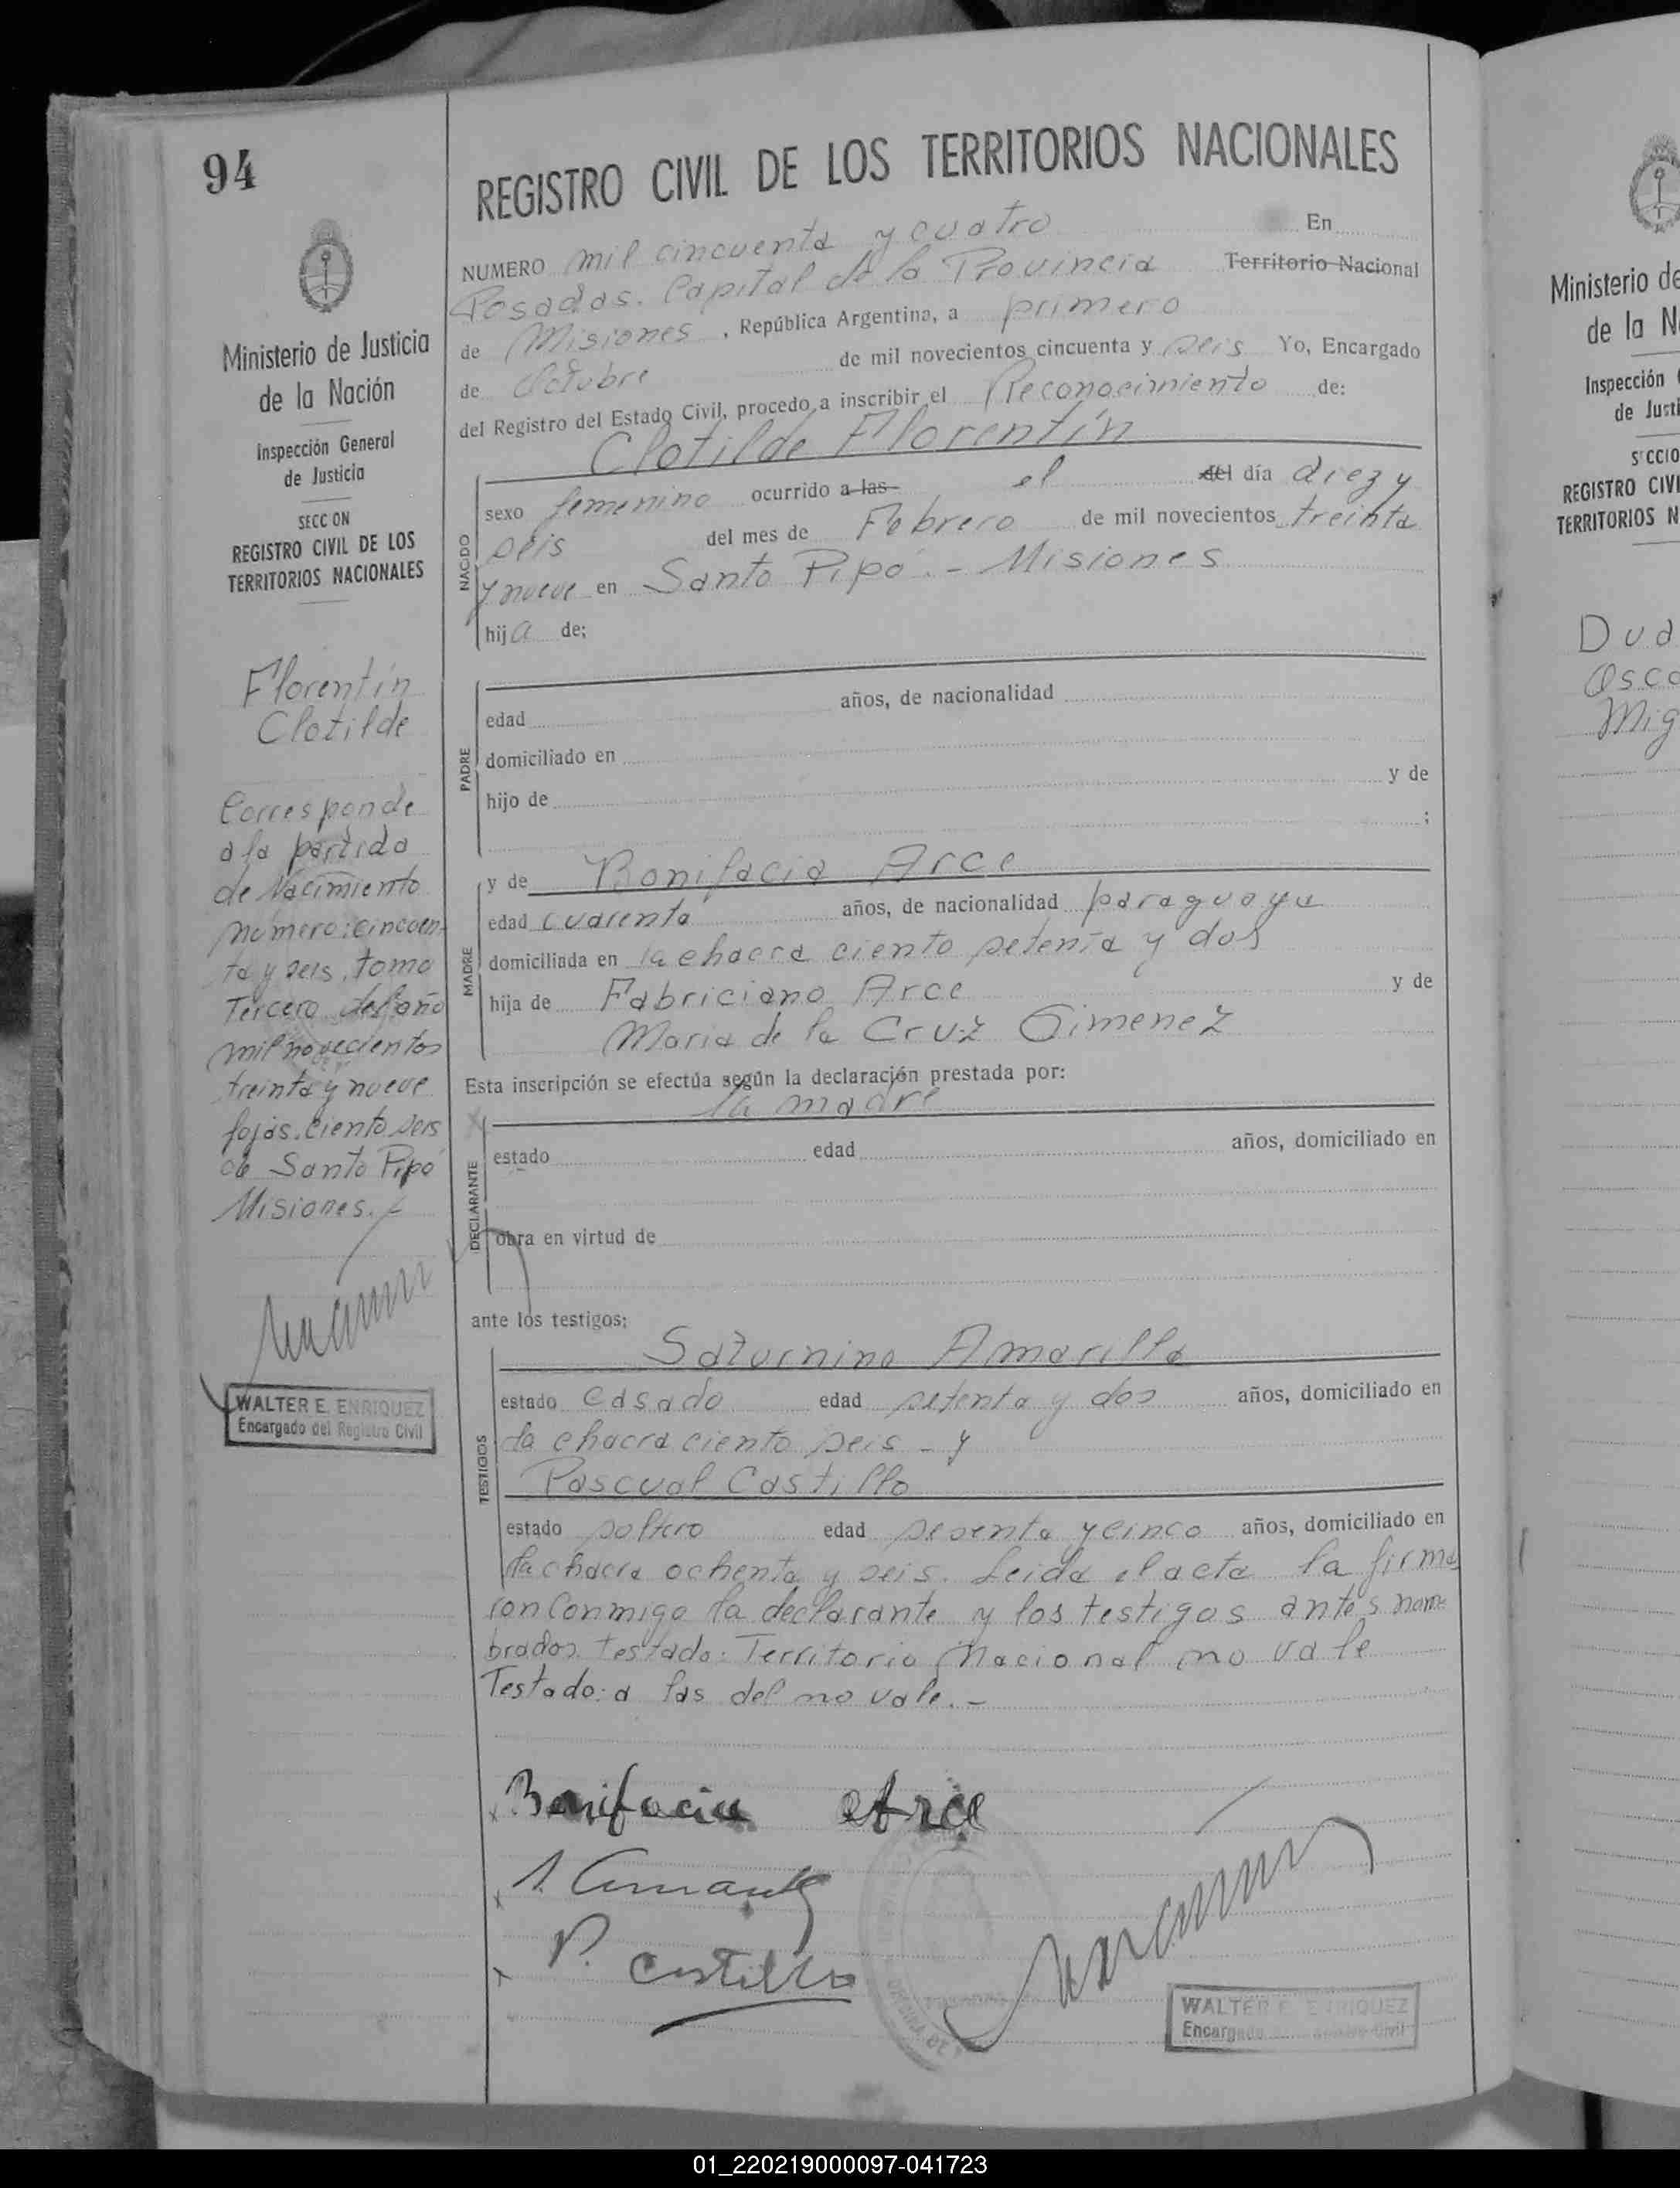 94
REGISTRO CIVIL DE LOS TERRITORIOS NACIONALES
Ministerio de Justicia
de la Nación
Inspección General
de Justicia
SECCION
REGISTRO CIVIL DE LOS
TERRITORIOS NACIONALES
Florentín
Clotilde
Corresponde
a la partida
de Nacimiento
número: cincuen-
ta y seis, tomo
Tercero del año
mil novecientos
treinta y nueve
fojas. ciento seis
de Santo Pipó
Misiones.
WALTER E. ENRIQUEZ
Encargado del Registro Civil
NUMERO mil cincuenta y cuatro En
Posadas. Capital de la Provincia Territorio Nacional
de Misiones , República Argentina, a primero
de Octubre de mil novecientos cincuenta y seis Yo, Encargado
del Registro del Estado Civil, procedo a inscribir el Reconocimiento de:
Clotilde Florentín
NACIDO
sexo femenino ocurrido a las el del día diez y
seis del mes de Febrero de mil novecientos treinta
y nueve en Santo Pipó - Misiones
hija de;
PADRE
edad años, de nacionalidad
domiciliado en
hijo de y de
;
MADRE
y de Bonifacia Arce
edad cuarenta años, de nacionalidad paraguaya
domiciliada en la chacra ciento setenta y dos
hija de Fabriciano Arce y de
Maria de la Cruz Gimenez
Esta inscripción se efectúa según la declaración prestada por:
la madre
DECLARANTE
estado edad años, domiciliado en
obra en virtud de
ante los testigos:
TESTIGOS
Saturnino Amarilla
estado casado edad setenta y dos años, domiciliado en
la chacra ciento seis - y
Pascual Castillo
estado soltero edad sesenta y cinco años, domiciliado en
la chacra ochenta y seis. Leida el acta la firma
ron conmigo la declarante y los testigos antes nom
brados. Testado: Territorio Nacional no vale
Testado: a las del no vale. -
Bonifacia Arce
P. Castillo
WALTER E. ENRIQUEZ
Encargado del Registro Civil
Ministerio de
de la N
Inspección
de Justi
SECCIO
REGISTRO CIVI
TERRITORIOS N
Dua
Osca
Mig
01_220219000097-041723